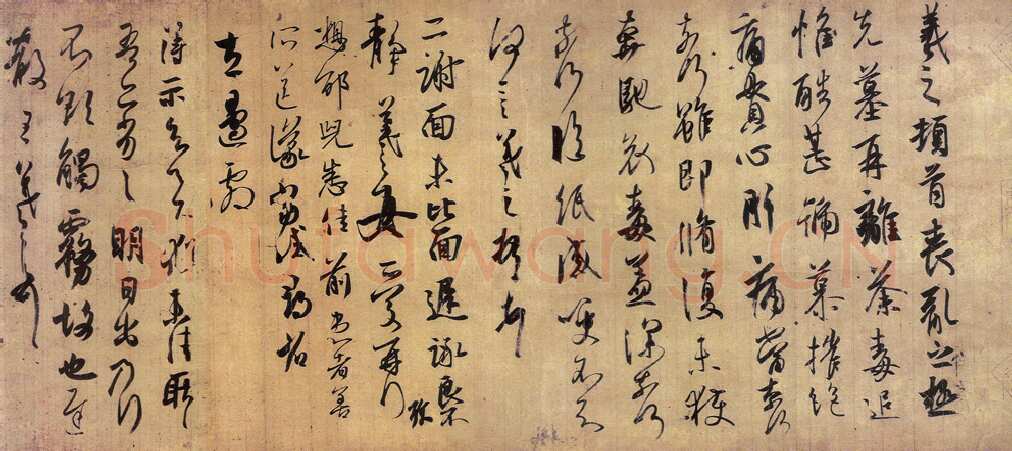 羲之頓首喪亂之極
先墓再離荼毒追
惟酷甚號慕摧絕
痛貫心肝痛當奈何
奈何雖即脩復未獲
奔馳哀毒益深奈何
奈何臨紙感哽不知
何言羲之頓首頓首
二謝面未比面遲詠良不
靜羲之女愛再拜
想邵兒悉佳前患者善
所送議當試尋省
左邊劇
得示知足下猶未佳耿耿
吾亦劣劣明日出乃行
不欲觸霧故也遲
散王羲之頓首
Shufawang.CN